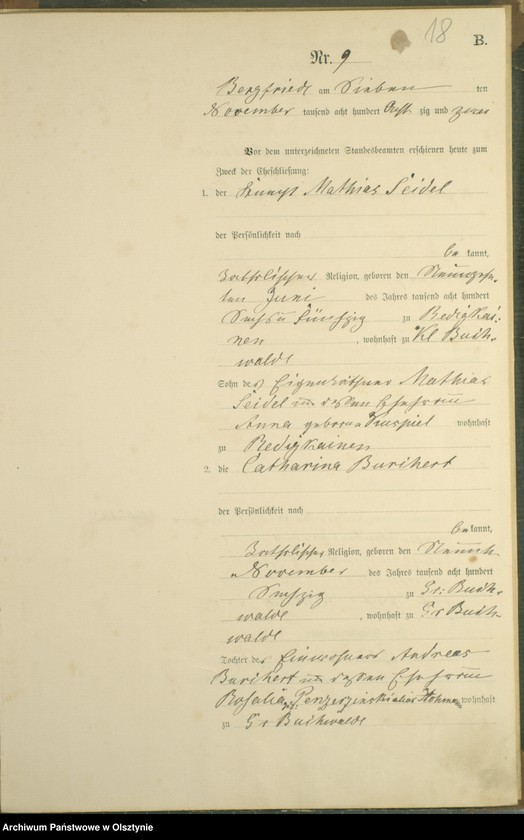 18
B.
Nr. 9
Bergfriede am Sieben ten
November tausend acht hundert Acht zig und zwei
Vor dem unterzeichneten Standesbeamten erschienen heute zum
Zweck der Eheschließung:
1. der Knecht Mathias Seidel
der Persönlichkeit nach
be kannt,
katholischer Religion, geboren den Neunzehn-
ten Juni des Jahres tausend acht hundert
Sechs u fünfzig zu Redigkai-
nen, wohnhaft zu Kl Buch-
walde
Sohn des Eigenkäthner Mathias
Seidel und dessen Ehefrau
Anna geborene wohnhaft
zu Redigkainen
2. die Catharina Burchert
der Persönlichkeit nach
be kannt,
katholischer Religion, geboren den
November des Jahres tausend acht hundert
Sechzig zu Gr: Buch-
walde, wohnhaft zu Gr Buch-
walde
Tochter des Einwohners Andreas
Burchert und dessen Ehefrau
Rosalia alias wohnhaft
zu Gr Buchwalde
Archiwum Państwowe w Olsztynie